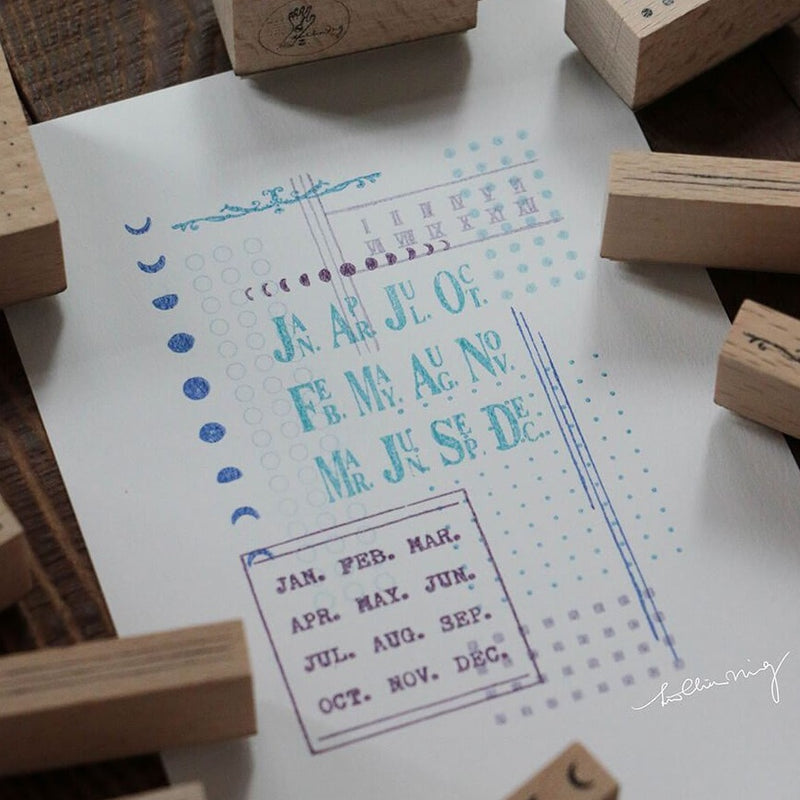 I II III IV V VI
VII VIII IX X XI XII
JAN. APR. JUL. OCT.
FEB. MAY. AUG. NOV.
MAR. JUN. SEP. DEC.
JAN. FEB. MAR.
APR. MAY. JUN.
JUL. AUG. SEP.
OCT. NOV. DEC.